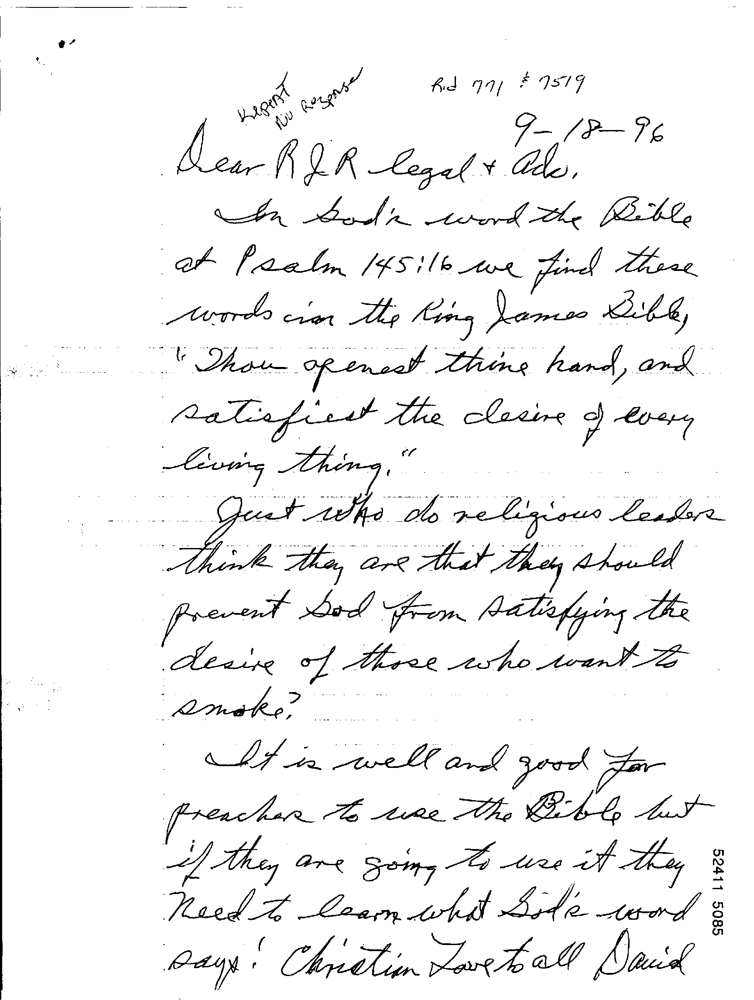 Repeat
No Response
Rid 771 & 7519
9-18-96
Dear RJR legal + Adv.
In God's word the Bible
at Psalm 145:16 we find these
words in the King James Bible,
"Thou openest thine hand, and
satisfiest the desire of every
living thing."
Just who do religious leaders
think they are that they should
prevent God from satisfying the
desire of those who want to
smoke?
It is well and good for
preachers to use the Bible but
if they are going to use it they
need to learn what God's word
says! Christian Love to all David
52411 5085